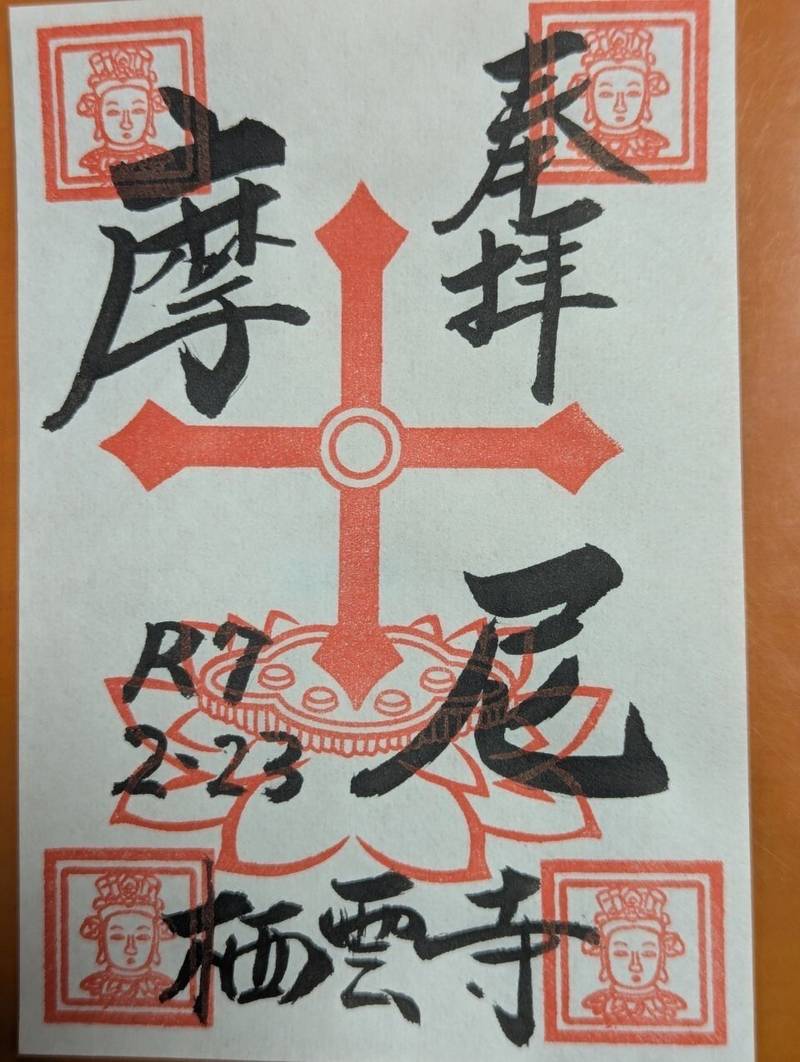 奉拝
摩尼
R7
2-23
栖雲寺